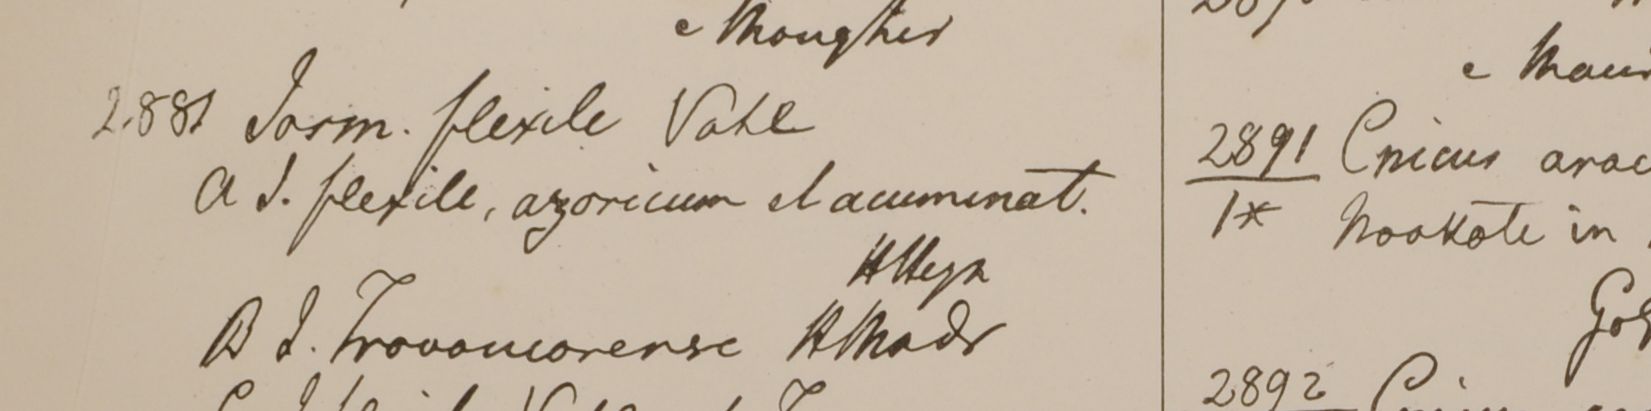 e Moughir
2881 Jasm. flexile Vahl
A J. flexile, azoricum et acuminat.
HHeyn
B J. Travancorense HMadr
e Mau
2891 Cnicus arac
1* Nookote in
Go
2892 Cnicus